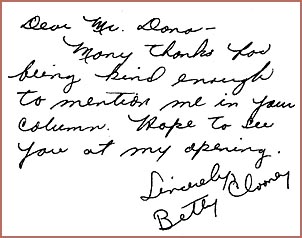 Dear Mr. Dana-
Many thanks for
being kind enough
to mention me in your
column. Hope to see
you at my opening.
Sincerely,
Betty Clooney